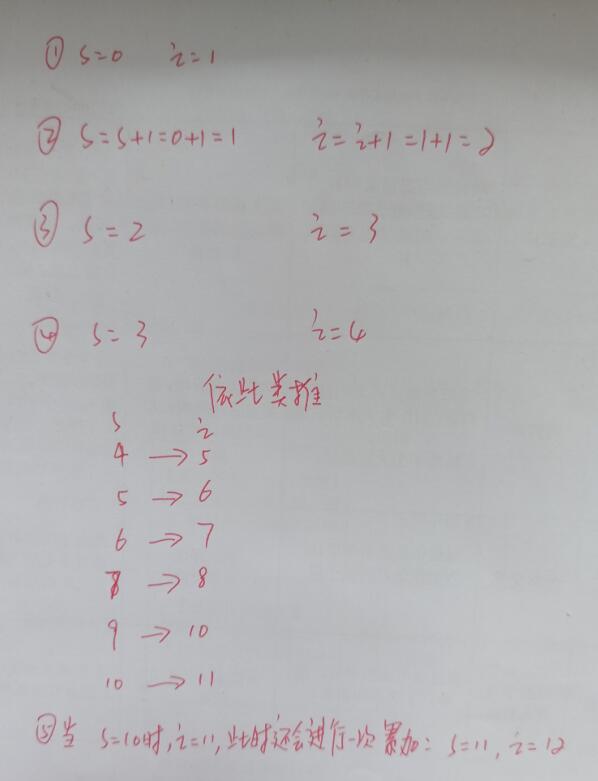 ① s=0 i=1
② s=s+1=0+1=1 i=i+1=1+1=2
③ s=2 i=3
④ s=3 i=4
依此类推
s i
4→5
5→6
6→7
7→8
9→10
10→11
⑤当 s=10时,i=11,此时还会进行一次累加: s=11, i=12